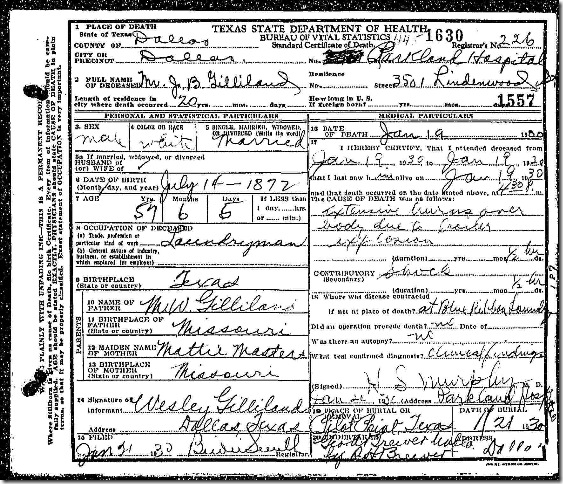 TEXAS STATE DEPARTMENT OF HEALTH
BUREAU OF VITAL STATISTICS 1630
Standard Certificate of Death Registrar's No. 226
1 PLACE OF DEATH
State of Texas
COUNTY OF Dallas
CITY OR PRECINCT Dallas No. Parkland Hospital
2 FULL NAME OF DECEASED Mr. J. B. Gilliland
Residence No. 3501 Street Lindenwood
Length of residence in city where death occurred 20 yrs. mos. days
How long in U. S. if foreign born? yrs. mos. 1557
PERSONAL AND STATISTICAL PARTICULARS
3 SEX male
4 COLOR OR RACE white
5 SINGLE, MARRIED, WIDOWED, OR DIVORCED (Write the word) Married
5a If married, widowed, or divorced
HUSBAND OF
(or) WIFE of
6 DATE OF BIRTH
(Month, day, and year) July 14-1872
7 AGE Yrs. 57 Mos. 6 Days 5 If LESS than 1 day, hrs. or min.
8 OCCUPATION OF DECEASED
(a) Trade, profession, or particular kind of work Laundryman
(b) General nature of industry, business, or establishment in which employed (or employer)
9 BIRTHPLACE
(State or country) Texas
PARENTS
10 NAME OF FATHER M. W. Gilliland
11 BIRTHPLACE OF FATHER
(State or country) Missouri
12 MAIDEN NAME OF MOTHER Mattie Masters
13 BIRTHPLACE OF MOTHER
(State or country) Missouri
14 Signature of Informant Wesley Gilliland
Address Dallas Texas
15 FILED Jan 21 30
Registrar
MEDICAL PARTICULARS
16 DATE OF DEATH Jan 19 1930
17 I HEREBY CERTIFY, That I attended deceased from
Jan 19 1930 to Jan 19 1930
that I last saw alive on Jan 19 1930
and that death occurred on the date stated above, at
The CAUSE OF DEATH was as follows:
Extensive burns over
body due to
explosion
(duration) yrs. mos. ½ hr
CONTRIBUTORY Shock
(Secondary)
(duration) yrs. mos. ½ hr
18 Where was disease contracted
if not at place of death? at Blue Ribbon Laundry
Did an operation precede death? no Date of
Was there an autopsy? no
What test confirmed diagnosis? Clinical findings
(Signed) H S Murphy M. D.
(Address) Parkland Hosp
19 PLACE OF BURIAL OR REMOVAL Pilot Point Texas
DATE OF BURIAL 1/21 30
20 UNDERTAKER George Brewer
Dallas